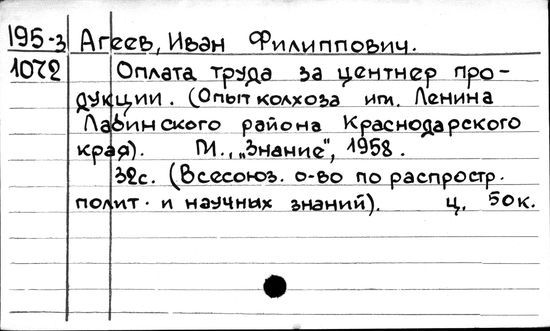 195-3 Агеев, Иван Филиппович.
1072 Оплата труда за центнер про-
дукции. (Опыт колхоза им. Ленина
Лабинского района Краснодарского
края). М., „Знание", 1958.
32с. (Всесоюз. о-во по распростр.
полит. и научных знаний). ц. 50к.